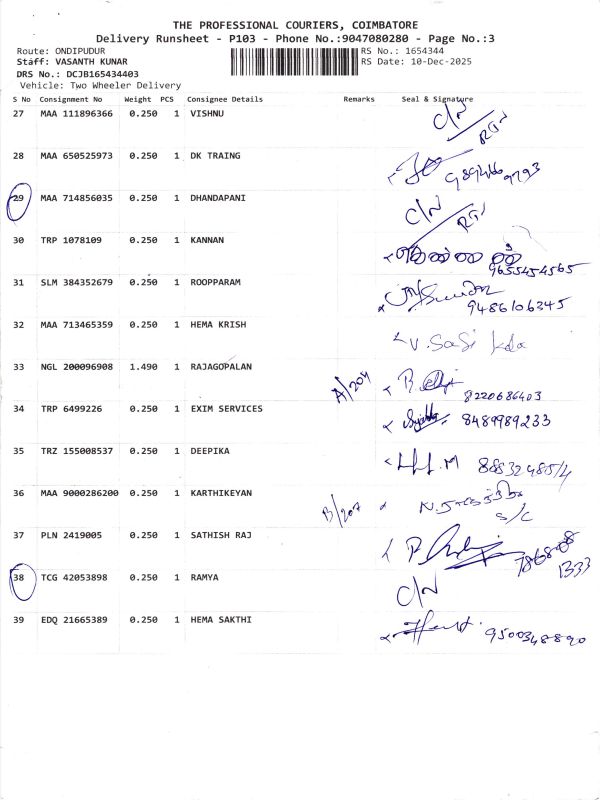 THE PROFESSIONAL COURIERS, COIMBATORE
Delivery Runsheet - P103 - Phone No.:9047080280 - Page No.:3
Route: ONDIPUDUR RS No.: 1654344
Staff: VASANTH KUNAR RS Date: 10-Dec-2025
DRS No.: DCJB165434403
Vehicle: Two Wheeler Delivery
S No Consignment No Weight PCS Consignee Details Remarks Seal & Signature
27 MAA 111896366 0.250 1 VISHNU C/N RTN
28 MAA 650525973 0.250 1 DK TRAING
29 MAA 714856035 0.250 1 DHANDAPANI C/N RTN
30 TRP 1078109 0.250 1 KANNAN 9655454565
31 SLM 384352679 0.250 1 ROOPPARAM 9486106345
32 MAA 713465359 0.250 1 HEMA KRISH V. Sasi
33 NGL 200096908 1.490 1 RAJAGOPALAN A/204 8220686403
34 TRP 6499226 0.250 1 EXIM SERVICES 8489989233
35 TRZ 155008537 0.250 1 DEEPIKA
36 MAA 9000286200 0.250 1 KARTHIKEYAN B/207 S/C
37 PLN 2419005 0.250 1 SATHISH RAJ
38 TCG 42053898 0.250 1 RAMYA C/N
39 EDQ 21665389 0.250 1 HEMA SAKTHI 9500348890